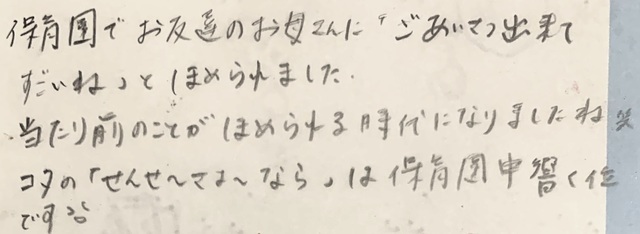 保育園でお友達のお母さんに「ごあいさつ出来て
すごいね」とほめられました.
当たり前のことがほめられる時代になりましたね笑
コタの「せんせ〜さよ〜なら」は保育園中響く位
です